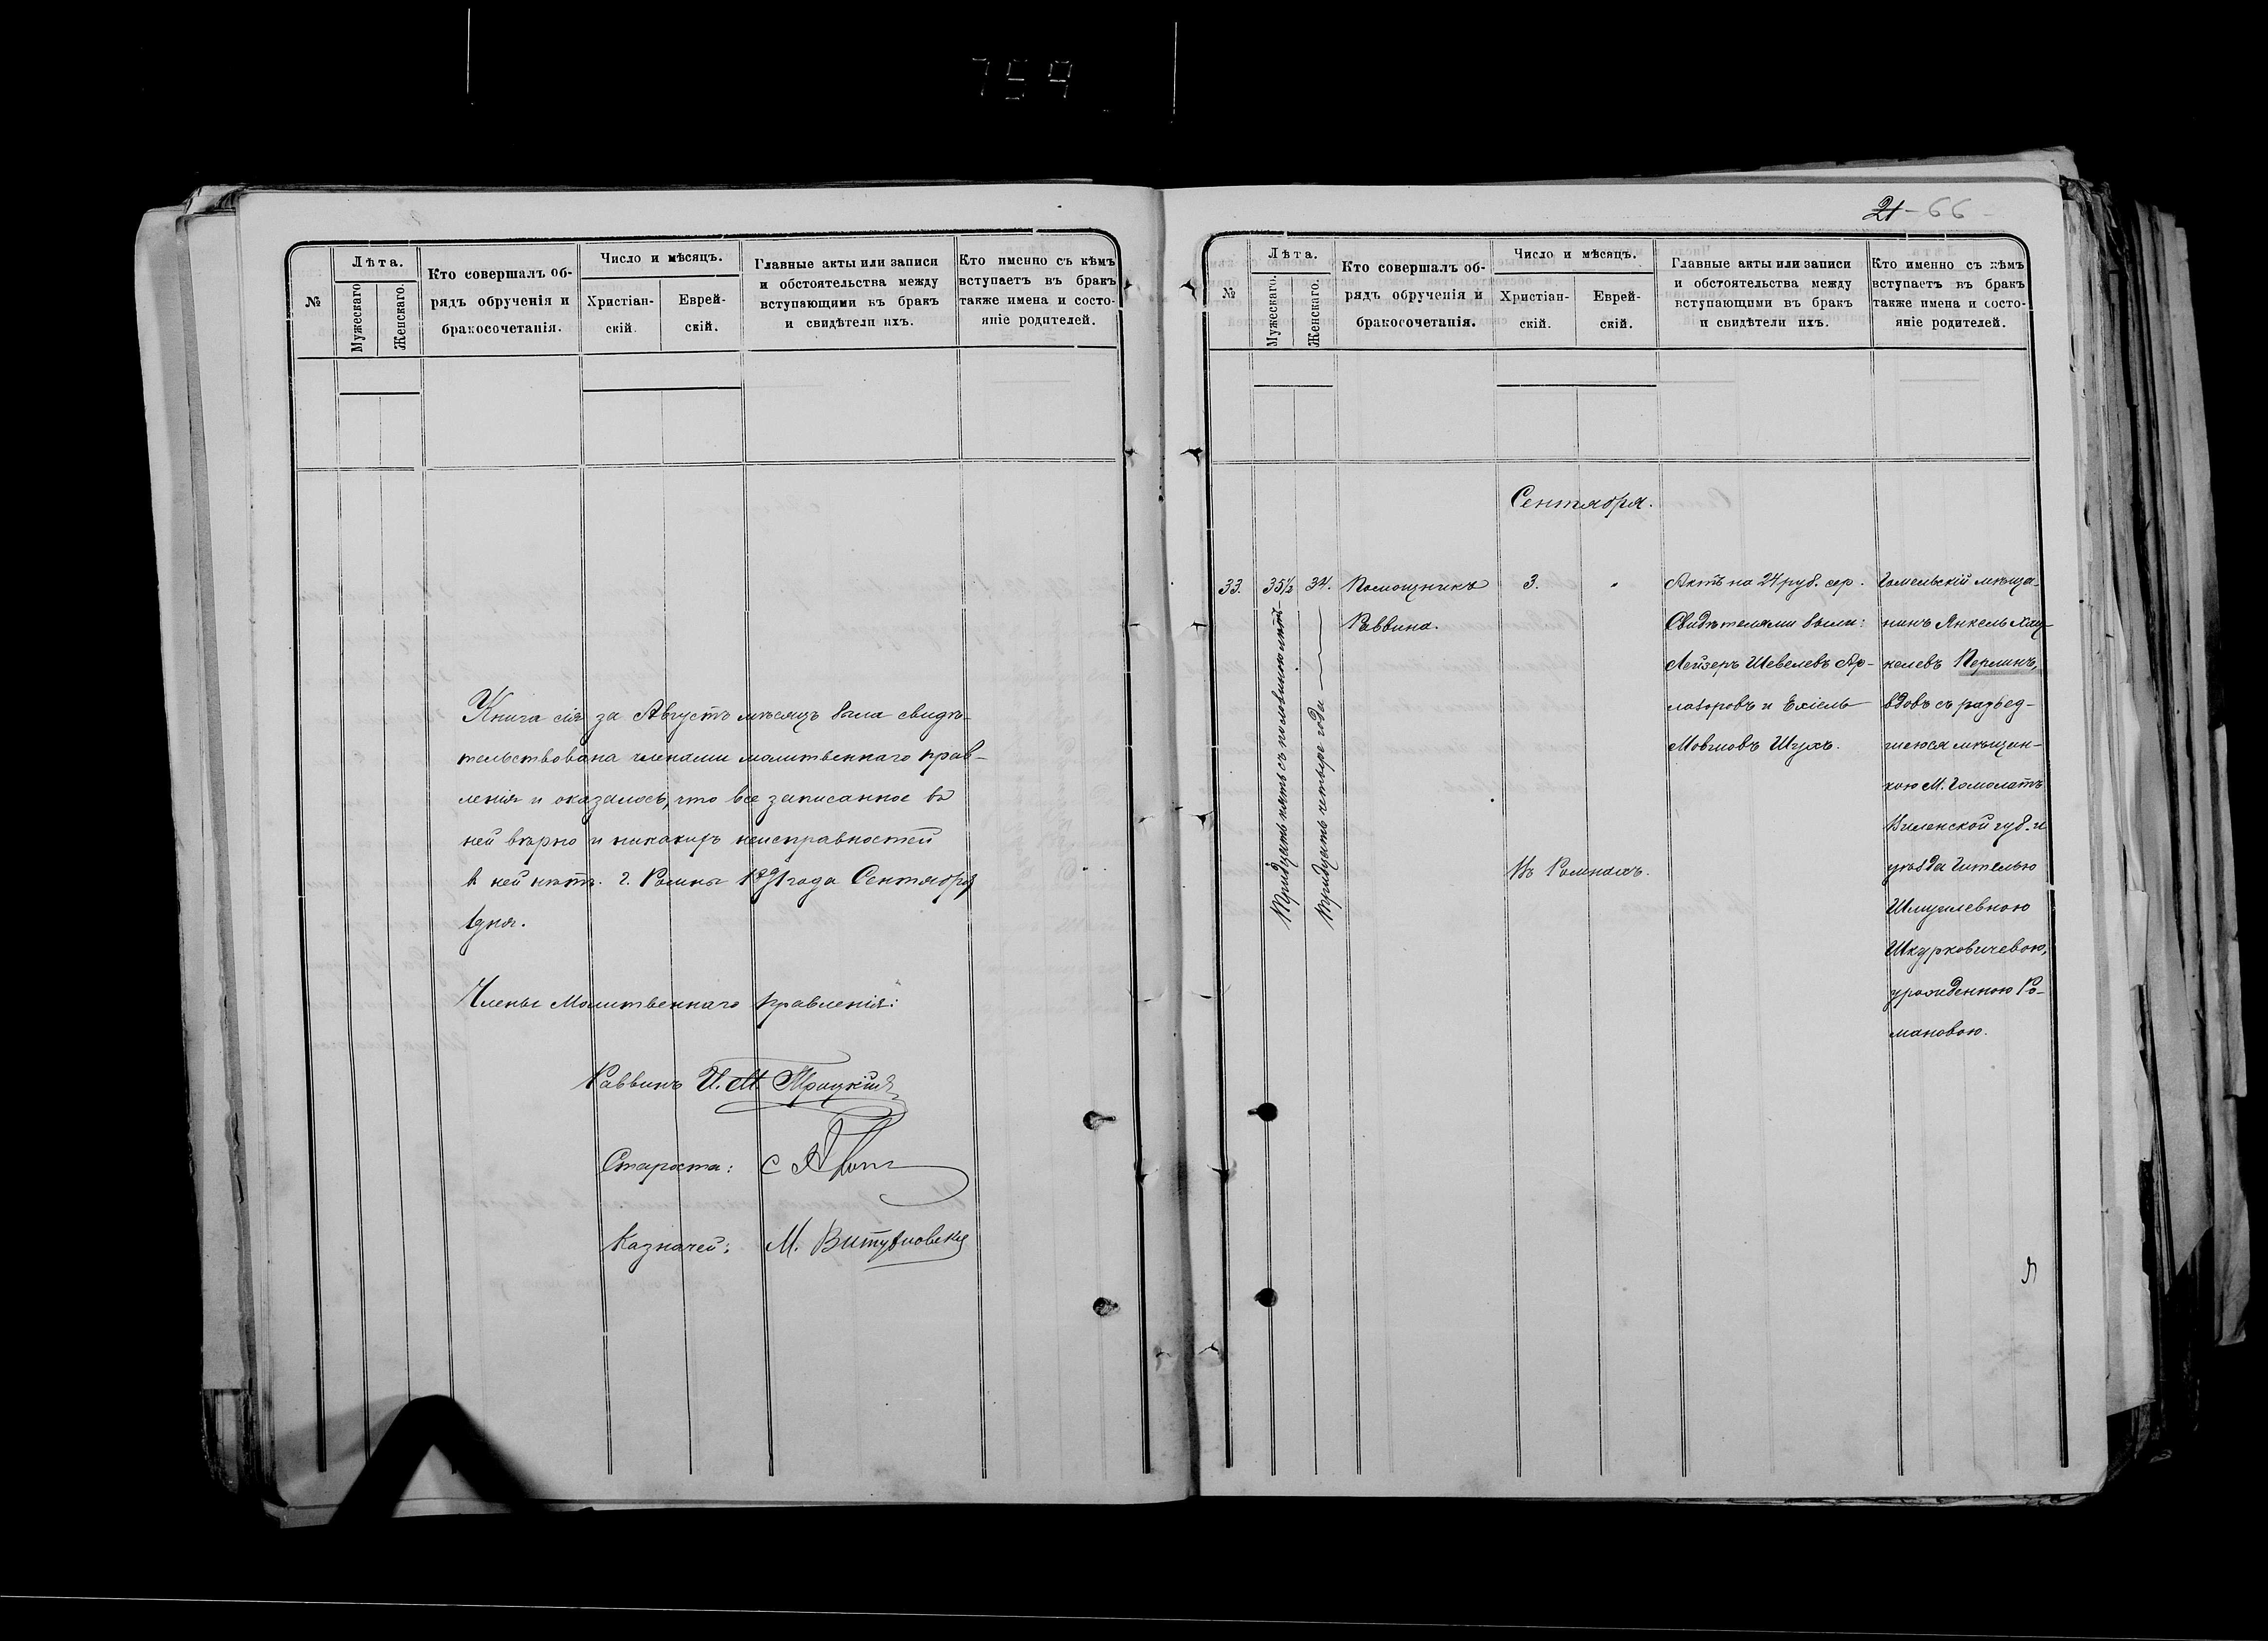 759
№
Лѣта.
Мужескаго
Женскаго.
Кто совершалъ об-
рядъ обрученія и
бракосочетанія.
Число и мѣсяцъ.
Христіан-
скій.
Еврей-
скій.
Главные акты или записи
и обстоятельства между
вступающими въ бракъ
и свидѣтели ихъ.
Кто именно съ кѣмъ
вступаетъ въ бракъ
также имена и состо-
яніе родителей.
Книга сія за Августъ мѣсяцъ была свидѣ-
тельствована членами молитвеннаго прав-
ленія и оказалось, что все записанное въ
ней вѣрно и никакихъ неисправностей
въ ней нѣтъ. г. Ромны 1891 года Сентября
1 дня.
Члены Молитвеннаго Правленія:
Раввинъ И. М. Троцкій
Староста: С
Казначей: М.
21 - 66
№
Лѣта.
Мужескаго.
Женскаго.
Кто совершалъ об-
рядъ обрученія и
бракосочетанія.
Число и мѣсяцъ.
Христіан-
скій.
Еврей-
скій.
Главные акты или записи
и обстоятельства между
вступающими въ бракъ
и свидѣтели ихъ.
Кто именно съ кѣмъ
вступаетъ въ бракъ
также имена и состо-
яніе родителей.
Сентября.
33.
35½
Тридцать пять съ половиною лѣтъ
34.
Тридцать четыре года
Помощникъ
Раввина.
3.
"
Въ Ромнахъ.
Актъ на 24 руб. сер.
Свидѣтелями были:
Лейзеръ Шевелевъ Ар-
лазоровъ и Ехіель
Мовшовъ Шухъ.
Гомельскій мѣща-
нинъ Янкель Хац-
келевъ Перлинъ,
вдовъ съ развед-
шеюся мѣщан-
кою М. Гомолатъ
Виленской губ. и
уѣзда Гителью
Шмуилевною
Шкурковичевою,
урожденною Ро-
мановою.